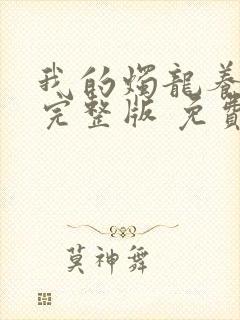 我的燭龍養
完整版 免費
莫神舞